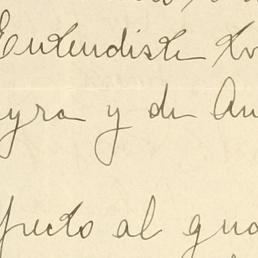 Entendiste
yra y de An
fecto al gua